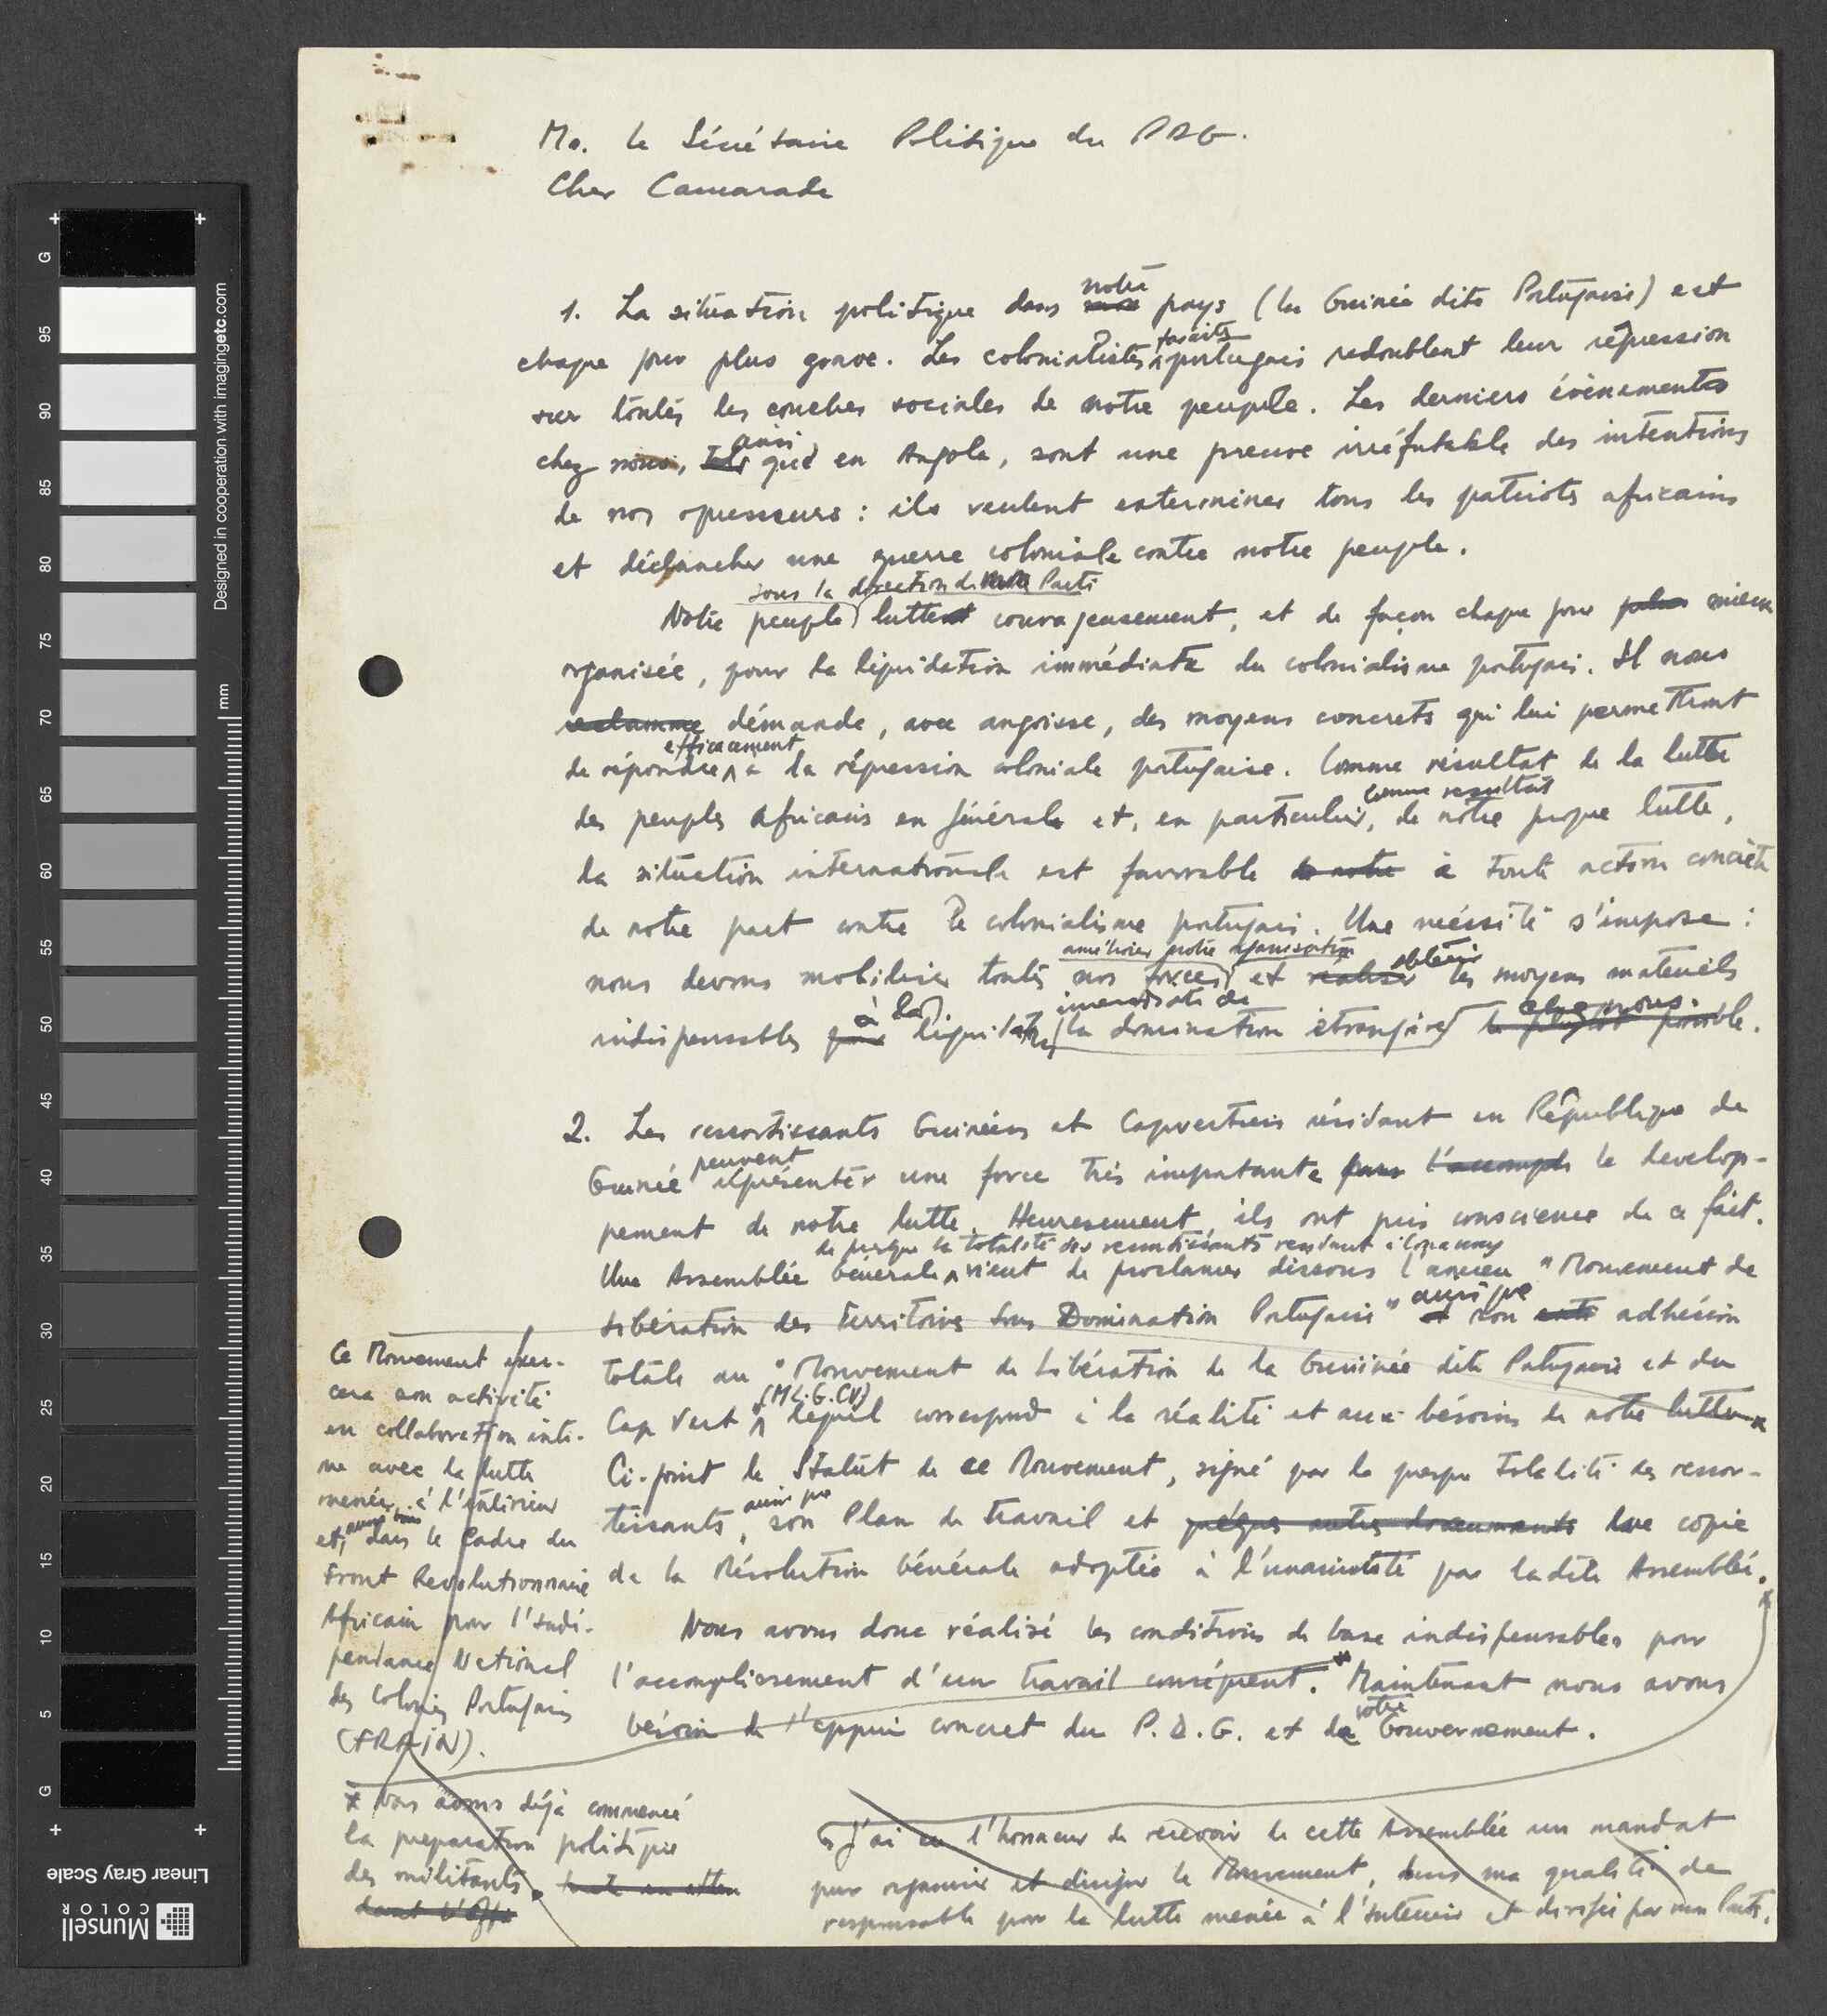 Mr. le Sécrétaire Politique du PDG.
Cher Camarade
1. La situation politique dans notre pays (la Guinée dite Portugaise) est
chaque jour plus grave. Les colonialistes fascistes portugais redoublent leur répression
sur toutes les couches sociales de notre peuple. Les derniers évènements
chez nous, ainsi que en Angola, sont une preuve irréfutable des intentions
de nos opresseurs : ils veulent exterminer tous les patriotes africains
et déclancher une guerre coloniale contre notre peuple.
sous la direction de notre Parti
Notre peuple lutte courageusement, et de façon chaque jour mieux
organisée, pour la liquidation immédiate du colonialisme portugais. Il nous
reclamme démande, avec angoisse, des moyens concrets qui lui permettront
de répondre efficacement à la répression coloniale portugaise. Comme résultat de la lutte
des peuples africains en général et, en particulier, comme resultat de notre propre lutte,
la situation internationale est favorable de notre à toute action concrète
de notre part contre le colonialisme portugais. Une nécéssité s'impose :
améliorer notre organisation
nous devons mobiliser toutes nos forces et realiser obtenir les moyens materiels
indispensables pour à la liquidation immediate de la domination étrangère le plus tôt possible. chez nous.
2. Les ressortissants Guinéens et Capverdiens résidant en République de
Guinée peuvent représenter une force très importante pour l'accompl le develop-
pement de notre lutte. Heuresement, ils ont pris conscience de ce fait.
de presque la totalité des ressortissants residant à Conakry
Une Assemblée Générale vient de proclamer dissous l'ancien "Mouvement de
Libération des Territoires sous Domination Portugaise" et ainsi que son adhésion
totale au "Mouvement de Libération de la Guinée dite Portugaise et du
Cap Vert (M.L.G.CV) lequel correspond à la réalité et aux bésoins de notre lutte
Ci-joint le Statut de ce Mouvement, signé par la presque totalité des ressor-
tissants, ainsi que son Plan de travail et quelques autres documents une copie
de la Résolution Générale adoptée à l'unanimité par ladite Assemblée.
Nous avons donc réalisé les conditions de base indispensables pour
l'accomplissement d'un travail conséquent.* Maintenant nous avons
bésoin de l'appui concret du P.D.G. et de votre Gouvernement.
Ce Mouvement exer-
cera son activité
en collaboration inti-
me avec la lutte
menée à l'intérieur
et, aussi bien dans le cadre du
Front Revolutionnaire
Africain pour l'Indé-
pendance National
des Colonies Portugaises
(FRAIN).
* Nous avons déjà commencé
la preparation politique
des militants. toute en atten
dant l'app
J'ai eu l'honneur de recevoir de cette Assemblée un mandat
pour organiser et diriger le Mouvement, dans ma qualité de
responsable pour la lutte menée à l'intérieur et dirigée par mon Parti.
Designed in cooperation with imagingetc.com
mm
G
95
90
85
80
75
70
65
60
55
50
45
40
35
30
25
20
15
10
5
G
Linear Gray Scale
Munsell
COLOR